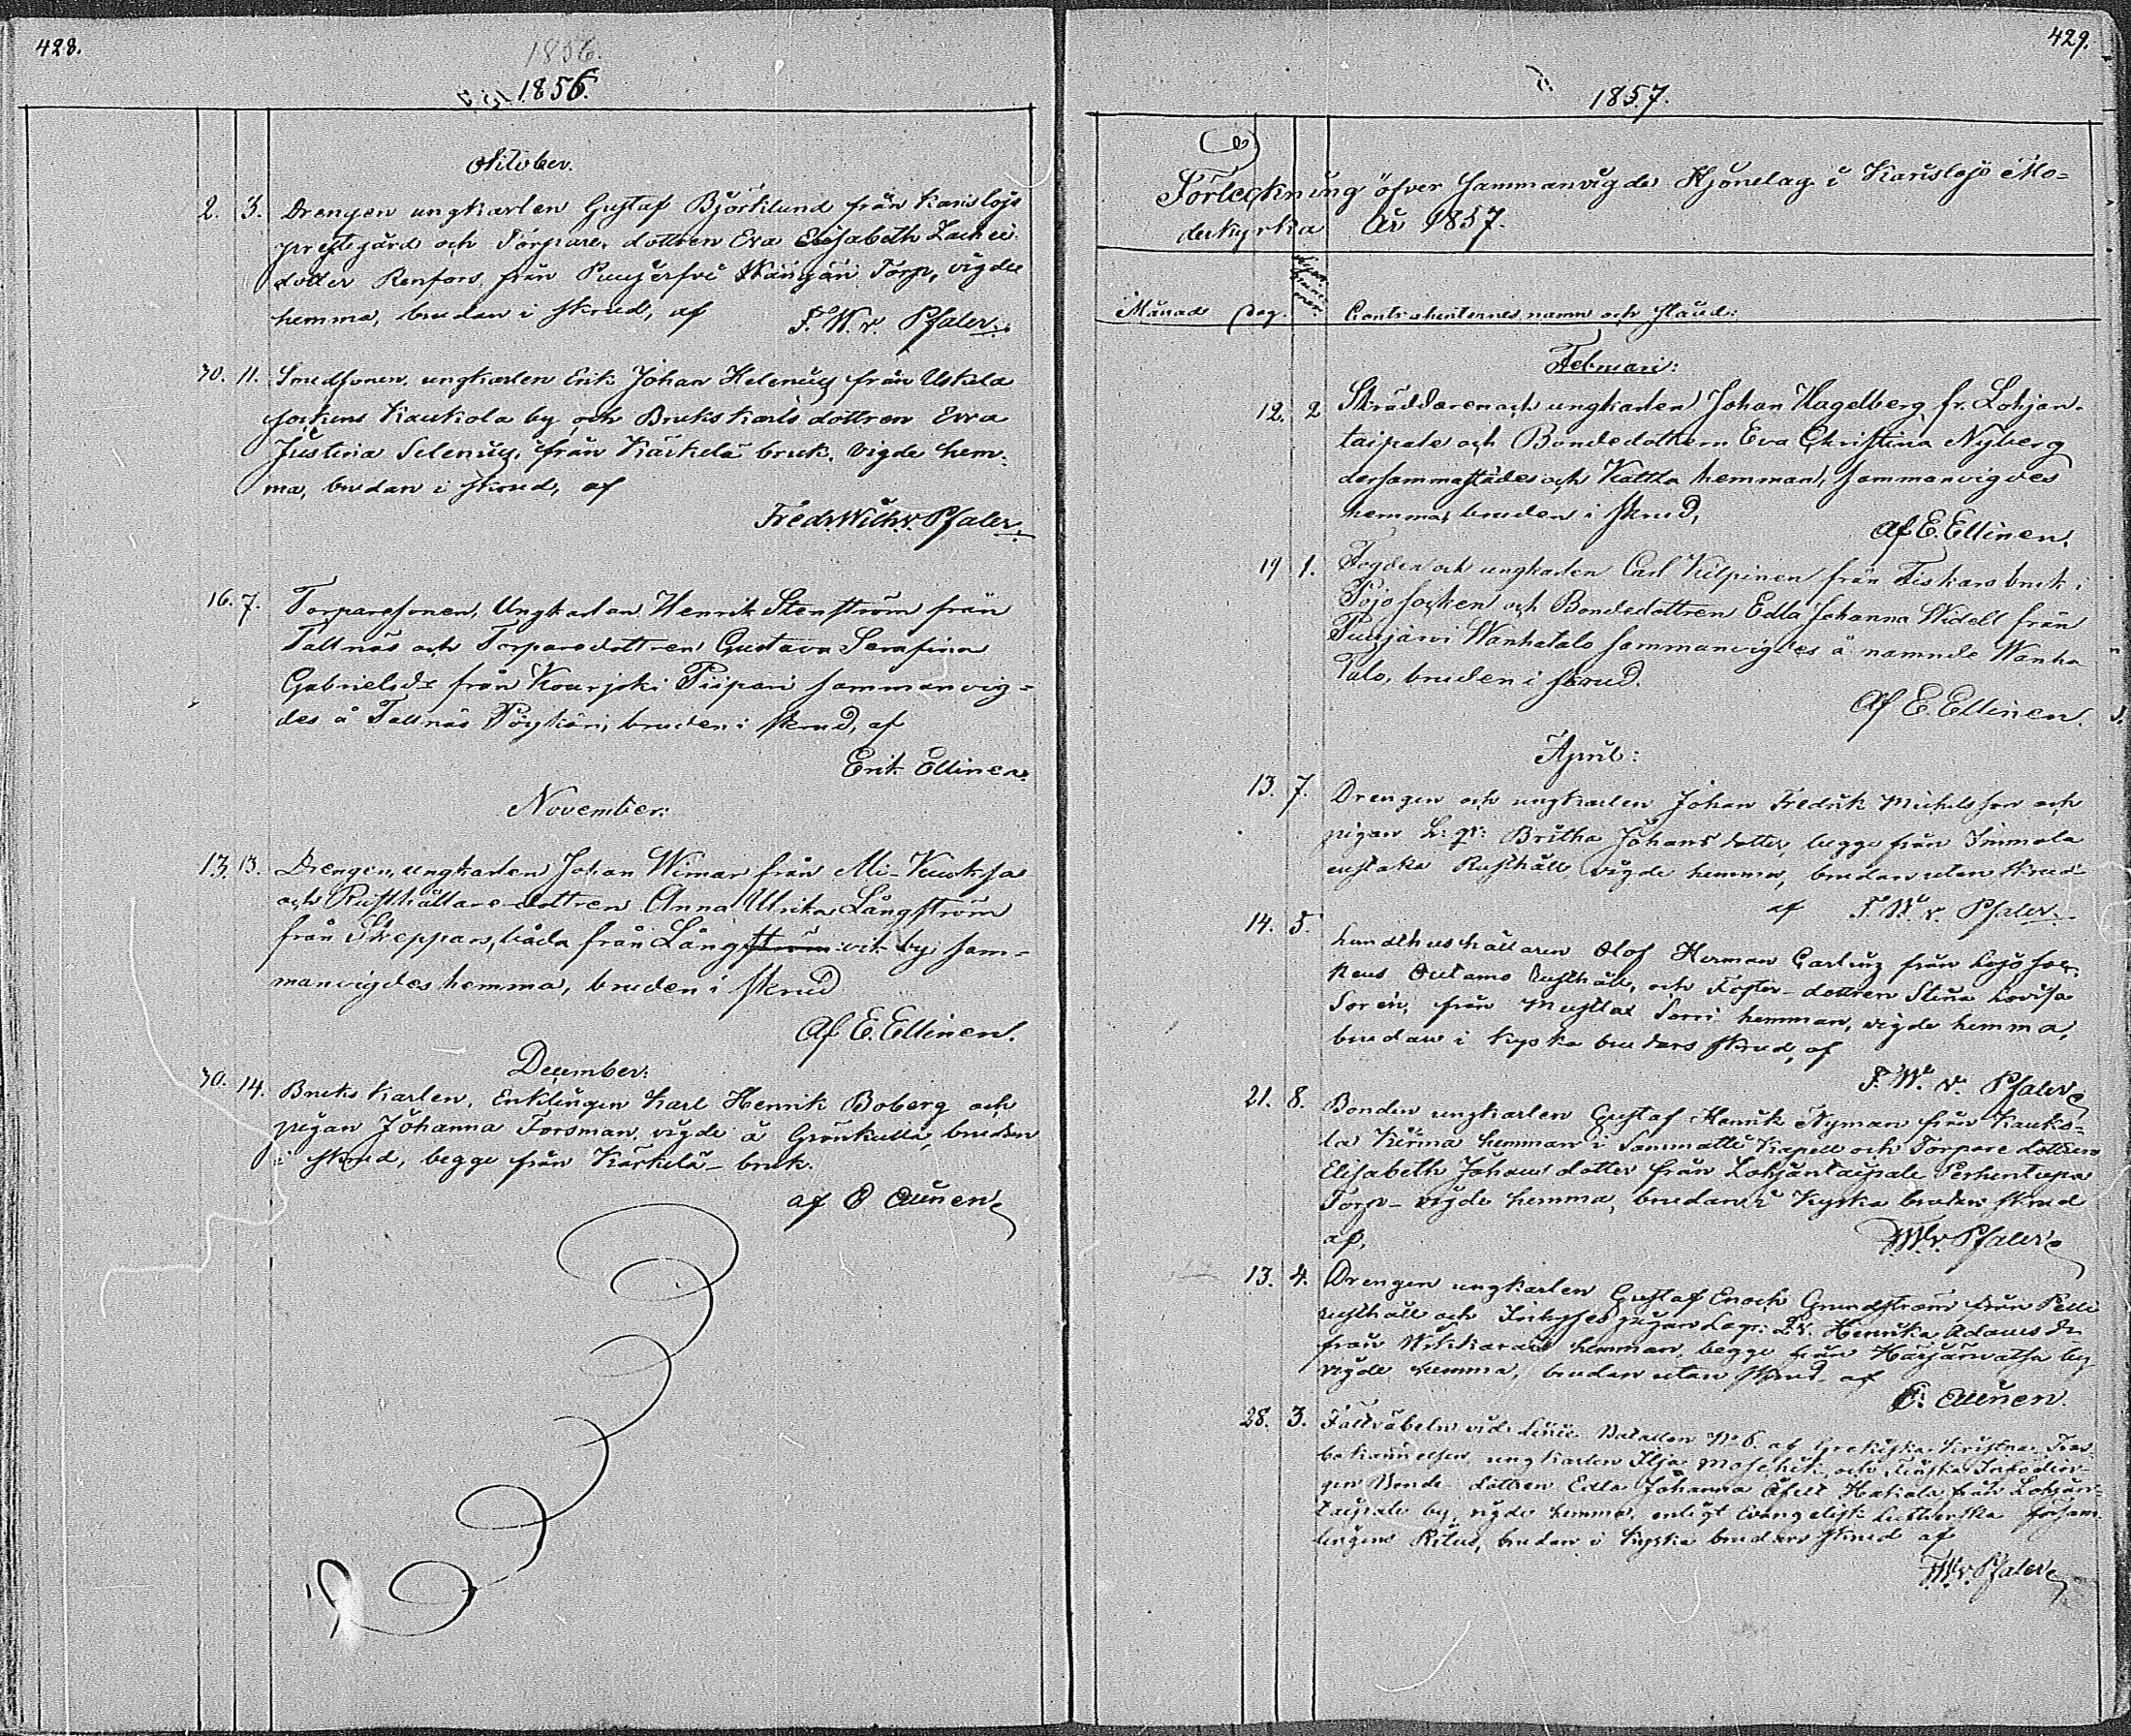 428.
1856.
1856.
Oktober.
2. 3. Drengen ungkarlen Gustaf Björklund från Karislojo
prestgård och Torpare dottren Eva Elisabeth Zachei
dotter Renfors från Puujerfvi Torp, vigde
hemma, brudan i skrud, af F. W. v Pfaler.
30. 11. Smedsonen, ungkarlen Erik Johan Helenius från Uskela
sockens Kaukola by och Brukskarls dottren Eva
Justina Selenius, från Kärkelä bruk. vigde hem-
ma, brudan i skrud, af
Fredr Wilh v. Pfaler.
16. 7. Torparesonen, Ungkarlen Henrik Stenström från
Tallnäs och Torparedottren Gustava Serafina
Gabrielsdr från Kourjoki Piispari sammanvig-
des å Tallnäs bruden i skrud, af
Erik Ellinen.
November:
13. 13. Drengen, ungkarlen Johan Wimar från
och Rusthållare dottren Anna Ulrika Långström
från Skeppars, båda från Långström vik by sam-
manvigdes hemma, bruden i skrud
Af E. Ellinen.
December:
30. 14. Bruks karlen, Enklingen Karl Henrik Boberg och
pigan Johanna Forsman, vigde å Grönkulla, brudan
i skrud, begge från Kärkelä bruk.
af E Ellinen
429.
1857.
Förteckning öfver Sammanvigde Hjonelag i Karislojo Mo-
derkyrka År 1857.
Månad Dag. Contrahenternes namn och stånd:
Februari:
12. 2 Skräddaren och ungkarlen Johan Hagelberg fr. Lohjan-
taipale och Bondedottern Eva Christina Nyberg
dersammastädes och Kattla hemman, sammanvigdes
hemma, bruden i skrud,
Af E. Ellinen.
19 1. Fogden och ungkarlen Carl Kilpinen från Fiskars bruk i
Pojo socken och Bondedottren Edla Johanna Widell från
Puujärvi Wanhatalo sammanvigdes å namnde Wanha
Talo, bruden i skrud.
Af E. Ellinen.
April:
13. 7. Drengen och ungkarlen Johan Fredrik Michelsson och
pigan Britha Johansdotter, begge från Immola
enstaka Rusthåll, vigde hemma, brudan utan skrud
af F. W. v. Pfaler.
14. 5. Landthushållaren Olof Herman Carlenz från Lojo soc-
kens Outamo Rusthåll, och Foster-dottren Stina Lovisa
Soren, från Mustlax Sorri hemman, vigde hemma,
brudan i kyska bruders skrud, af
F. W. v. Pfaler
21. 8. Bonden ungkarlen Gustaf Henrik Nyman från Kauko-
la hemman i Sammatti Kapell och Torpare dottren
Elisabeth Johansdotter från Lohjantaipale
Torp vigde hemma, brudan i kyska bruders skrud
af, FW v. Pfaler
13. 4. Drengen ungkarlen Gustaf Enoch Grundström från Pelli
rusthåll och pigan Henrika Adamsdr
från hemman begge från Härjänvatsa by
vigde hemma, brudan utan skrud af
E. Ellinen.
28. 3. Fältväbeln vid Linie Batallon No 6. af Grekiska Kristna Tros-
bekännelsen, ungkarlen Ilja Moschik, och Finska
Bonde dottren Edla Johanna Hakala från Lohjan-
taipale by, vigde hemma, enligt Evangelisk Lutherska försam-
lingens Ritus, brudan i kyska bruders skrud af
FW v. Pfaler